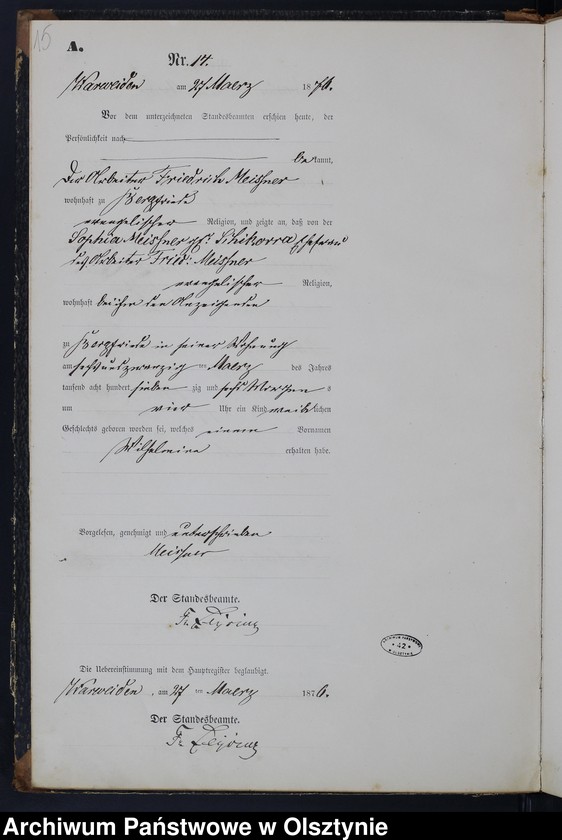 15
A.
Nr. 14.
Warweiden am 27 Maerz 1876.
Vor dem unterzeichneten Standesbeamten erschien heute, der
Persönlichkeit nach
bekannt,
Der Arbeiter Friedrich Meissner
wohnhaft zu Bergfriede
evangelischer Religion, und zeigte an, daß von der
Sophia Meissner geb. Schikorra Ehefrau
des Arbeiter Fried: Meissner
evangelischer Religion,
wohnhaft bei ihm den Anzeigenden
zu Bergfriede in seiner Wohnung
am sechsundzwanzig ten Maerz des Jahres
tausend acht hundert sieben zig und sechs Morgens
um vier Uhr ein Kind weiblichen
Geschlechts geboren worden sei, welches einen Vornamen
Wilhelmine erhalten habe.
Vorgelesen, genehmigt und unterschrieben
Meissner
Der Standesbeamte.
Die Uebereinstimmung mit dem Hauptregister beglaubigt.
Warweiden am 27 ten Maerz 1876.
Der Standesbeamte.
42
Archiwum Państwowe w Olsztynie